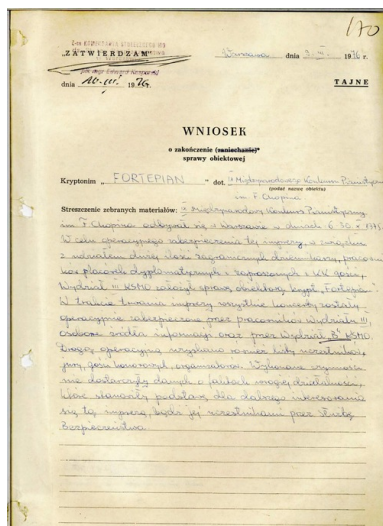 170
Z-CA KOMENDANTA STOŁECZNEGO MO
„ZATWIERDZAM"
Warszawa dnia 9. III. 1976 r.
dnia 10. III. 1976 r.
TAJNE
WNIOSEK
o zakończenie (zaniechanie)*
sprawy obiektowej
Kryptonim „ FORTEPIAN " dot. Międzynarodowy Konkurs Pianistyczny
(podać nazwę obiektu)
im. F. Chopina
Streszczenie zebranych materiałów: Międzynarodowy Konkurs Pianistyczny
im. F. Chopina odbywał się w Warszawie w dniach 6-30. X 1975
W celu operacyjnego zabezpieczenia tej imprezy, w związku
z udziałem dużej ilości zagranicznych dziennikarzy, pracowni-
ków placówek dyplomatycznych i zaproszonych z KK gości,
Wydział III KSMO założył sprawę obiektową krypt. „Fortepian".
W trakcie trwania imprezy wszystkie koncerty zostały
operacyjnie zabezpieczone przez pracowników Wydziału III,
osobowe źródła informacji oraz przez Wydział „B" KSMO.
Drogą operacyjną uzyskano również listy uczestników,
jury, gości honorowych, organizatorów. Wykonane czynności
nie dostarczyły danych o faktach wrogiej działalności,
które stanowiły podstawę dla dalszego interesowania
się tą imprezą, bądź jej uczestnikami przez Służbę
Bezpieczeństwa.